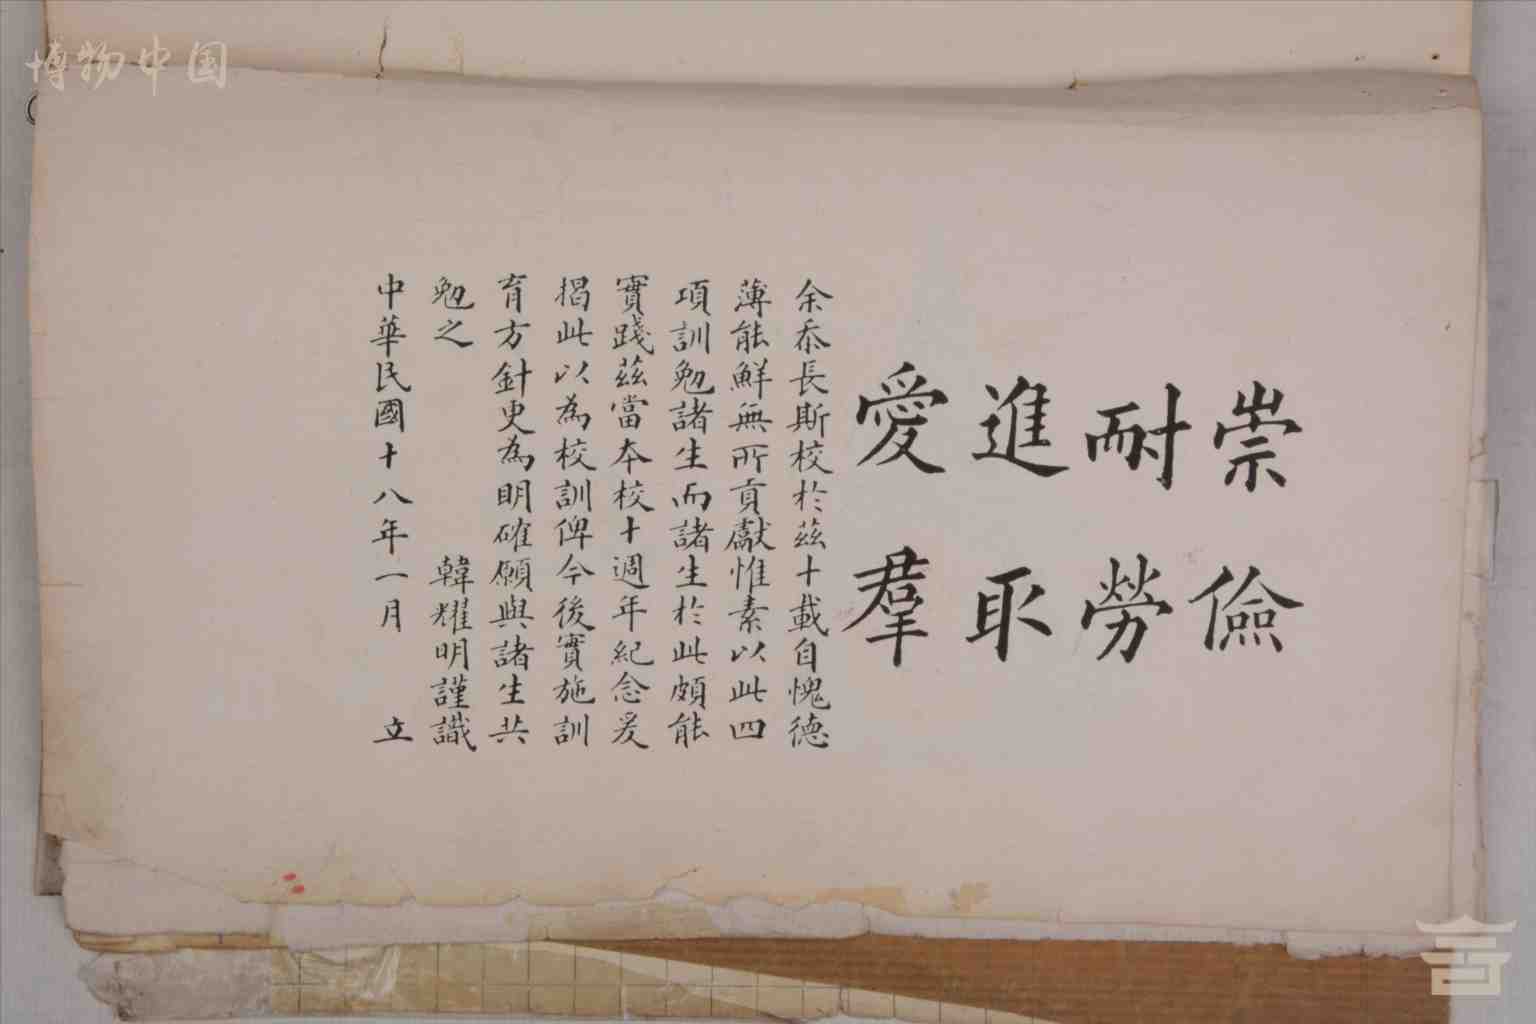 博物中国
崇儉
耐勞
進取
愛羣
余忝長斯校於茲十載自愧德
薄能鮮無所貢獻惟素以此四
項訓勉諸生而諸生於此頗能
實踐茲當本校十週年紀念爰
揭此以為校訓俾今後實施訓
育方針更為明確願與諸生共
勉之 韓耀明謹識
中華民國十八年一月 立